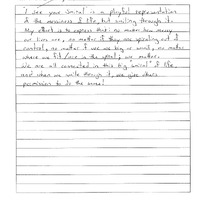 I see your "spiral" is a playful representation
of the messiness of life, but smiling through it.
My effort is to express that: no matter how messy
our lives are, no matter if they are spiraling out of
control, no matter if we are big or small, no matter
where we fit/are in the spiral; we matter.
We are all connected in this big "spiral" of life,
and when we smile through it, we give others
permission to do the same!